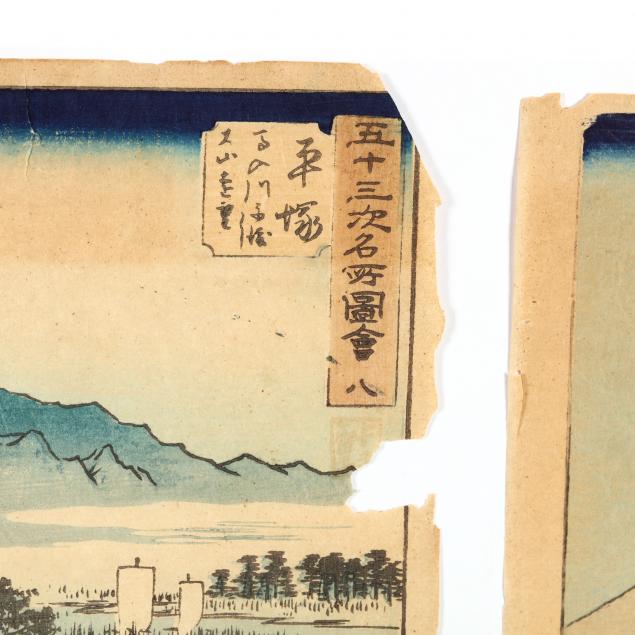 五十三次名所圖會 八
平塚
馬入川舟渡し
大山遠望